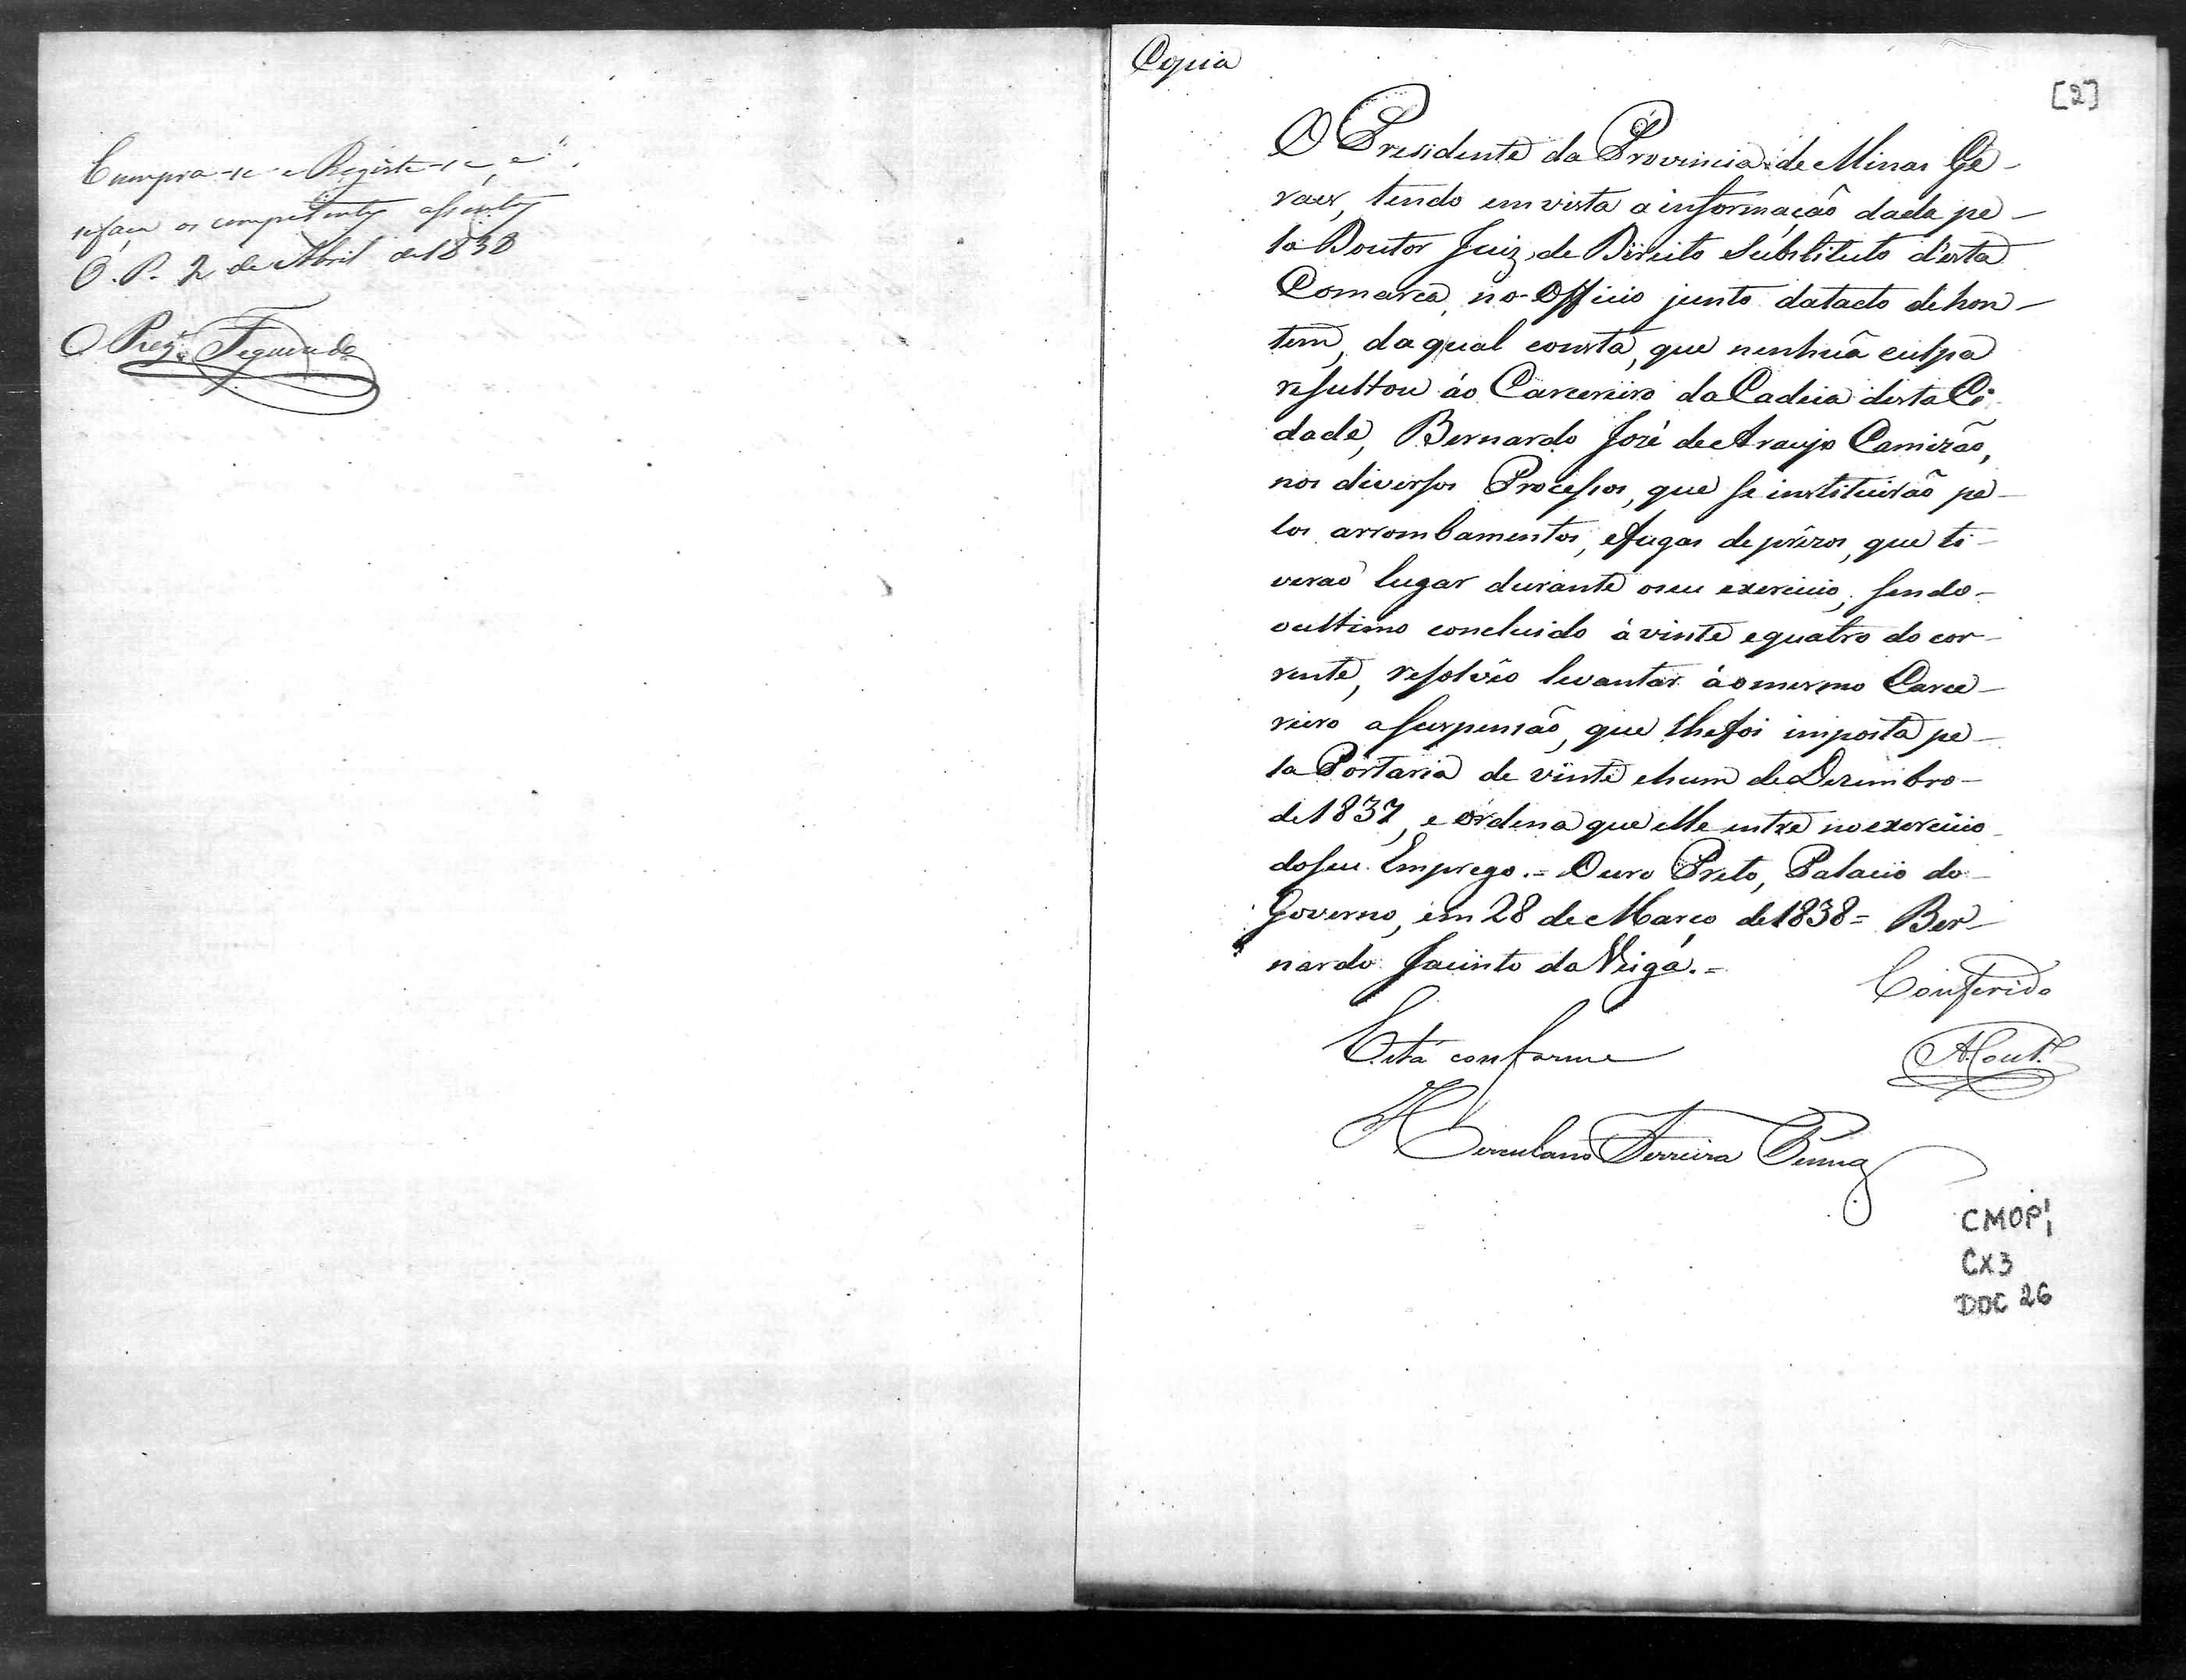 Cumpra-se e Registe-se, e
se facã os competentes assentos
O. P. 2 de Abril de 1838
O Prez.e Figueiredo
Copia
[2]
O Presidente da Provincia de Minas Ge-
raes, tendo em vista a informação dada pe-
lo Doutor Juiz de Direito Substituto d'esta
Comarca, no Officio junto datado de hon-
tem, da qual consta, que nenhuã culpa
resultou áo Carcereiro da Cadeia desta Ci-
dade, Bernardo José de Araujo Camizão,
nos diversos Processos, que se instituirão pe-
los arrombamentos, e fugas de prezos, que ti-
verão lugar durante o seu exercicio, sendo
o ultimo concluido á vinte e quatro do cor-
rente, resolvêo levantar áo mesmo Carce-
reiro a suspensão, que lhe foi imposta pe-
la Portaria de vinte e hum de Dezembro
de 1837, e ordena que elle entre no exercicio
do seu Emprego.= Ouro Preto, Palacio do
Governo, em 28 de Março de 1838= Ber-
nardo Jacinto da Veiga.=
Conferido
Está conforme
Herculano Ferreira Penna
CMOP1
CX3
DOC 26